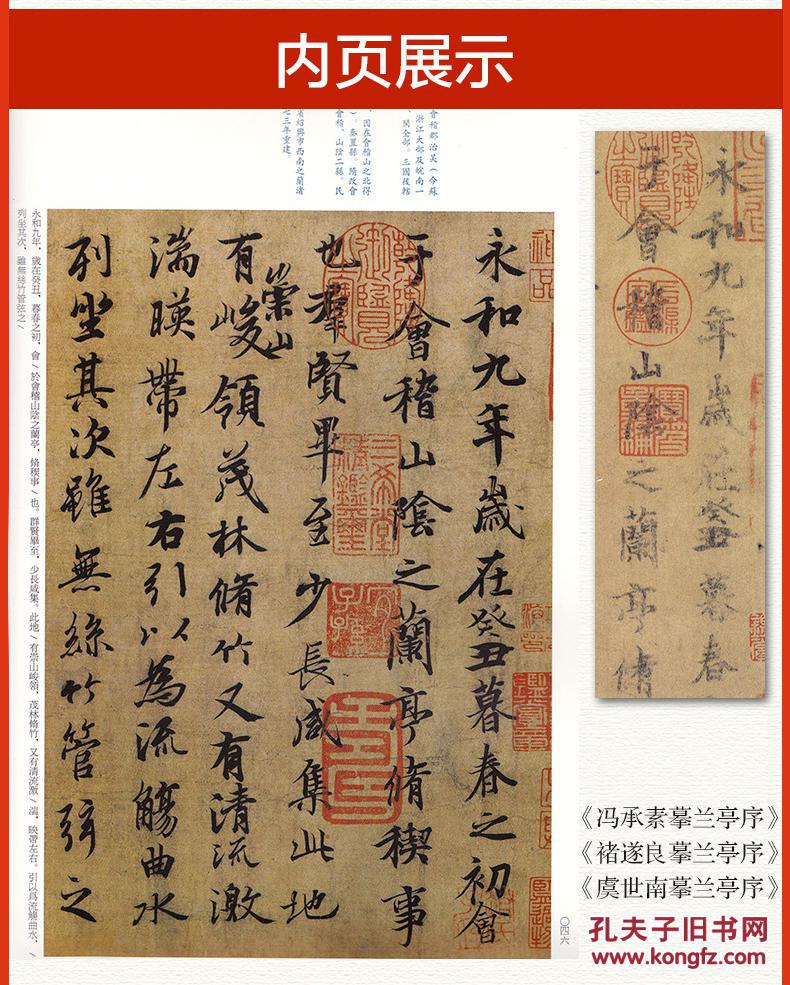 内页展示
會稽郡治吴（今蘇
浙江大部及皖南一
、閩全部。三國後轄
，因在會稽山之北得
）。秦置縣。隋改會
會稽、山陰二縣。民
省紹興市西南之蘭渚
七三年重建。
永和九年歲在癸丑暮春之初會
于會稽山陰之蘭亭脩稧事
也羣賢畢至少長咸集此地
有崇山峻領茂林脩竹又有清流激
湍暎帶左右引以為流觴曲水
列坐其次雖無絲竹管弦之
永和九年，歲在癸丑，暮春之初，會/於會稽山陰之蘭亭，脩稧事/也。群賢畢至，少長咸集。此地/有崇山峻領，茂林脩竹，又有清流激/湍，映帶左右。引以爲流觴曲水，/
列坐其次，雖無絲竹管弦之/
〇四六
永和九年歲在癸丑暮春
于會稽山陰之蘭亭脩
《冯承素摹兰亭序》
《褚遂良摹兰亭序》
《虞世南摹兰亭序》
孔夫子旧书网
www.kongfz.com